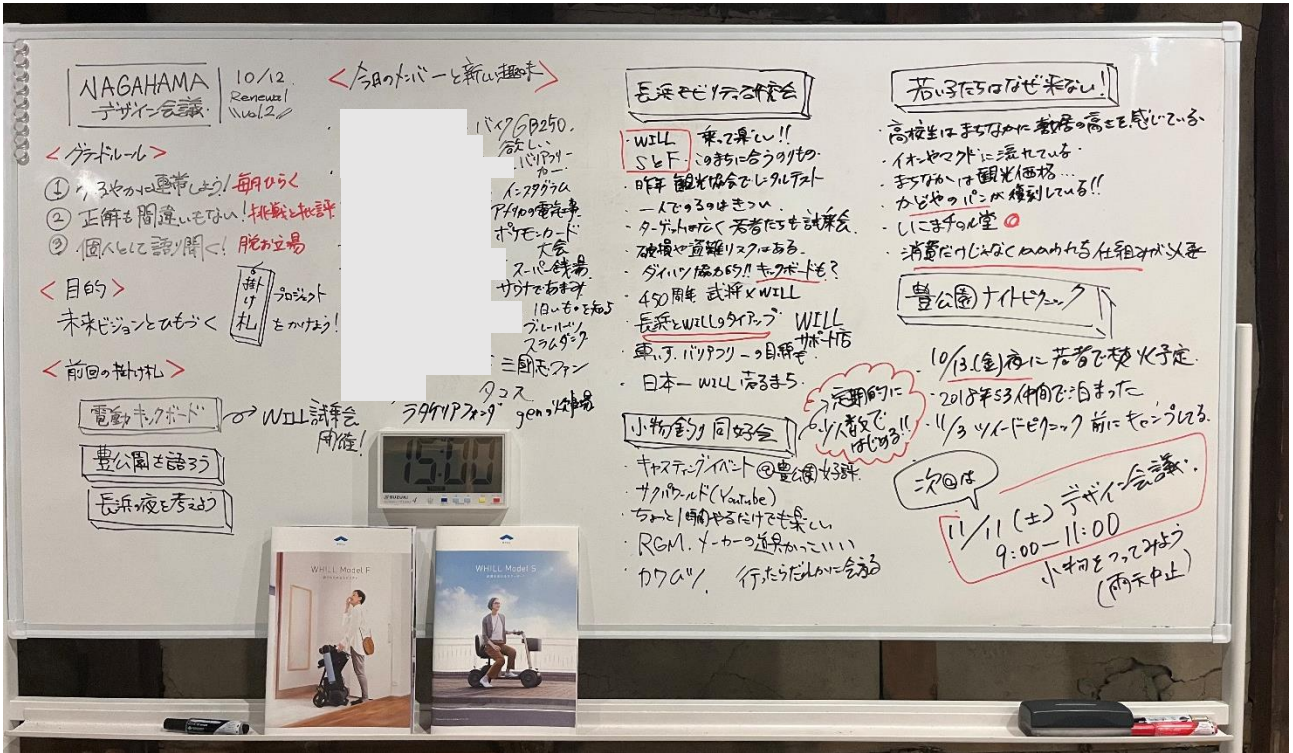 NAGAHAMA
デザイン会議
10/12.
Renewal
vol.2
<グランドルール>
① ゆるやかに連帯しよう! 毎月ひらく
② 正解も間違いもない! 挑戦と批評
③ 個人として語り聞く! 脱お立場
<目的>
未来ビジョンとひもづく
掛け札
プロジェクト
をかけよう!
<前回の掛け札>
電動キックボード
WILL試乗会
開催!
豊公園を語ろう
長浜の夜を考えよう
<今日のメンバーと新しい趣味>
バイクGB250.
欲しい
バリアフリー
カー.
インスタグラム
アメリカの電気工事.
ポケモンカード
大会
スーパー銭湯.
サウナであまみ.
旧いものを知る
ブルーハーツ
スラムダンク
三國志ファン
タコス
ラタケリアフォンダ
15:00
SUZUKI
WHILL Model F
WHILL Model S
長浜モビリティ研究会
・WILL 乗って楽しい!!
SとF ・このまちに合うのりもの.
・昨年 観光協会でレンタルテスト
・一人でのるのはきつい.
・ターゲットは広く 若者たちも試乗会.
・破損や盗難リスクはある.
・ダイハツ協力的!! キックボードも?
・450周年 武将×WILL
・長浜とWILLのタイアップ
WILL
サポート店
・車いす.バリアフリーの目線も.
・日本一WILL 借るまち
小物釣り同好会
定期的に
少人数で
はじめる!!
・キャスティングイベント @豊公園 好評.
・サクパワールド(Youtube)
・ちょっと1時間やるだけでも楽しい
・RGM.メーカーの道具かっこいい
・カワムツ 行ったらだれかに会える
若い子たちはなぜ来ない!
・高校生はまちなかに敷居の高さを感じている
・イオンやマクドに流れている.
・まちなかは観光価格...
・かどやのパンが復刻している!!
・しいこまチロル堂
・消費だけじゃなく 仕組みが必要
豊公園ナイトピクニック
・10/13.(金)夜に 若者で焚火予定.
・2018年53仲間で泊まった
・11/3 ツイードピクニック 前にキャンプしてる.
次回は
11/11(土)デザイン会議.
9:00-11:00
小物をつってみよう
(雨天中止)